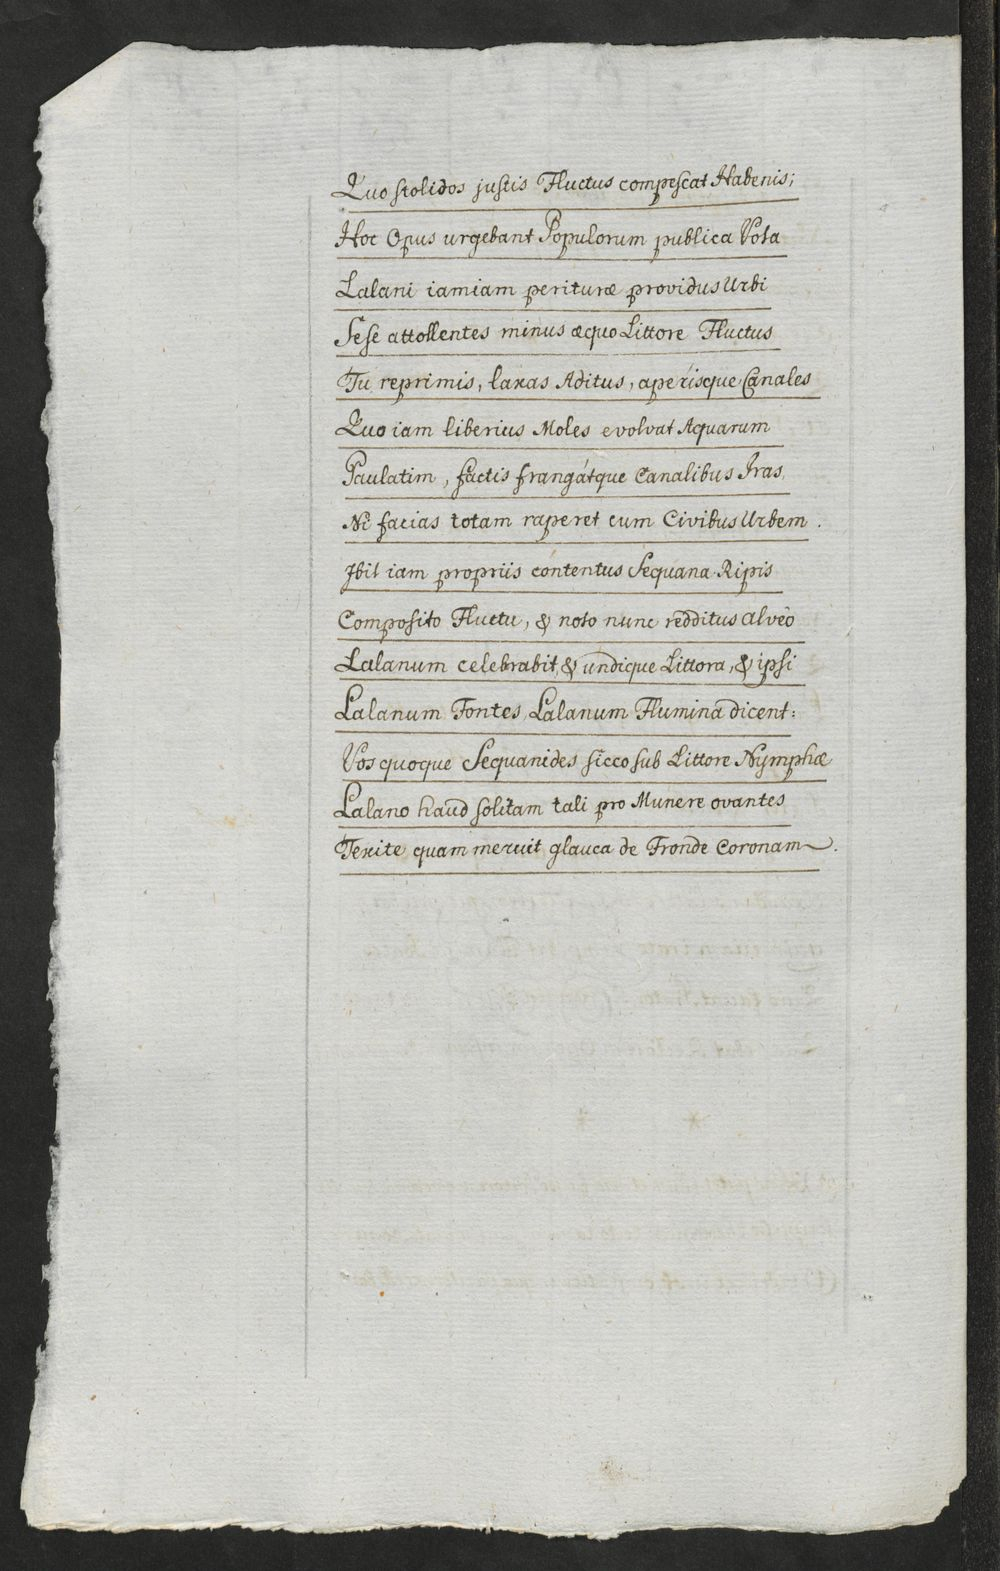 Quo stolidos justis Fluctus compescat Habenis;
Hoc Opus urgebant Populorum publica Vota
Lalani iamiam perituræ providus Urbi
Sese attollentes minus æquo Littore Fluctus
Tu reprimis, laxas Aditus, aperisque Canales
Quo iam liberius Moles evolvat Aquarum
Paulatim, factis frangátque Canalibus Iras.
Ni facias totam raperet cum Civibus Urbem.
Ibit iam propriis contentus Sequana Ripis
Composito Fluctu, & noto nunc redditus alveo
Lalanum celebrabit, & undique Littora, & ipsi
Lalanum Fontes, Lalanum Flumina dicent:
Vos quoque Sequanides sicco sub Littore Nymphæ
Lalano haud solitam tali pro Munere ovantes
Texite quam meruit glauca de Fronde Coronam.